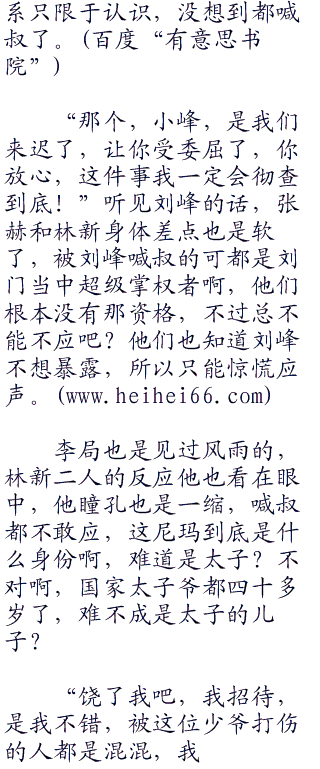 系只限于认识，没想到都喊
叔了。(百度“有意思书
院”)
“那个，小峰，是我们
来迟了，让你受委屈了，你
放心，这件事我一定会彻查
到底！”听见刘峰的话，张
赫和林新身体差点也是软
了，被刘峰喊叔的可都是刘
门当中超级掌权者啊，他们
根本没有那资格，不过总不
能不应吧？他们也知道刘峰
不想暴露，所以只能惊慌应
声。(www.heihei66.com)
李局也是见过风雨的，
林新二人的反应他也看在眼
中，他瞳孔也是一缩，喊叔
都不敢应，这尼玛到底是什
么身份啊，难道是太子？不
对啊，国家太子爷都四十多
岁了，难不成是太子的儿
子？
“饶了我吧，我招待，
是我不错，被这位少爷打伤
的人都是混混，我